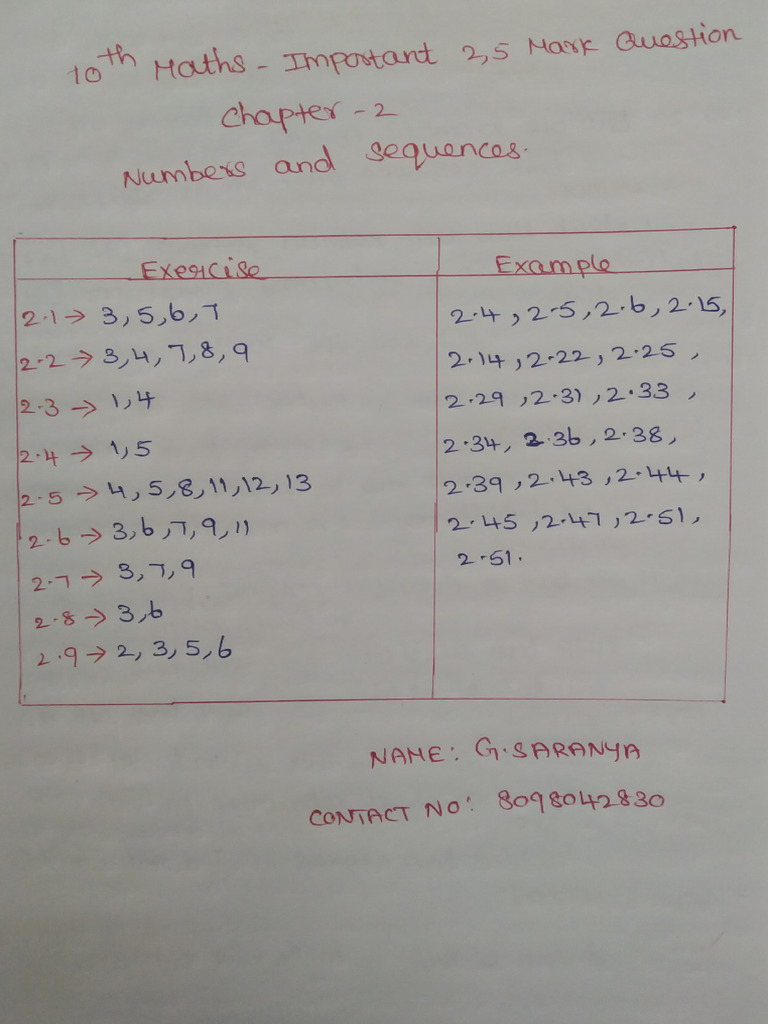 10th Maths - Important 2,5 Mark Question
Chapter - 2
Numbers and sequences.
Exercise
Example
2.1 → 3, 5, 6, 7
2.2 → 3, 4, 7, 8, 9
2.3 → 1, 4
2.4 → 1, 5
2.5 → 4, 5, 8, 11, 12, 13
2.6 → 3, 6, 7, 9, 11
2.7 → 3, 7, 9
2.8 → 3, 6
2.9 → 2, 3, 5, 6
2.4, 2.5, 2.6, 2.15,
2.14, 2.22, 2.25,
2.29, 2.31, 2.33,
2.34, 2.36, 2.38,
2.39, 2.43, 2.44,
2.45, 2.47, 2.51,
2.51.
NAME: G.SARANYA
CONTACT NO: 8098042830